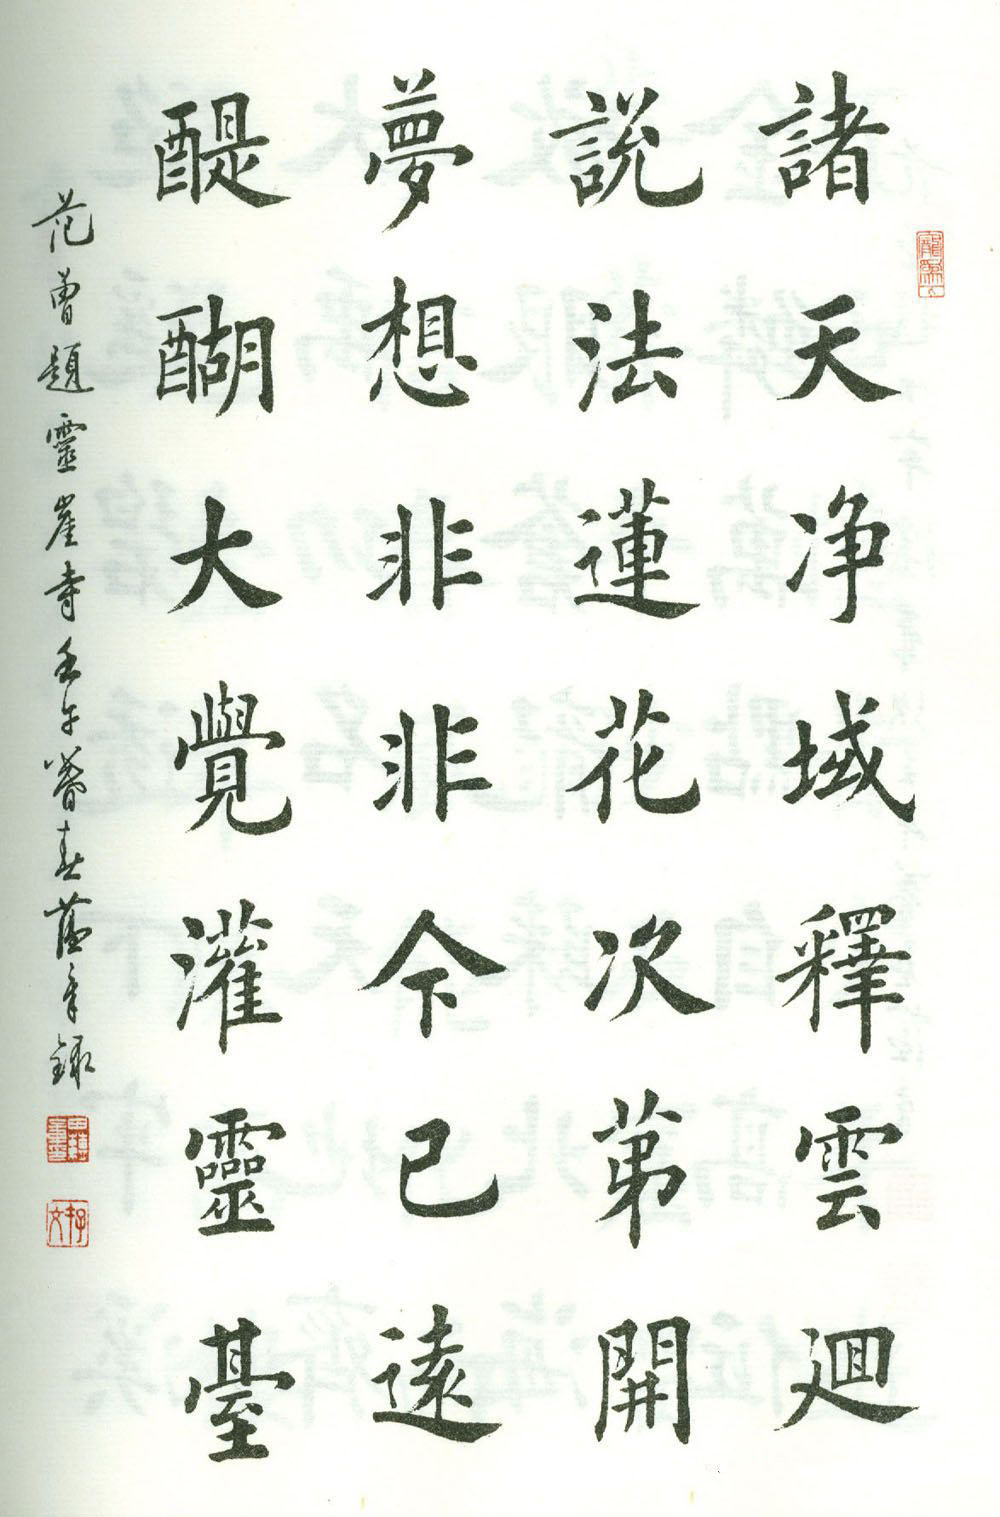 諸天净域釋雲迴
説法蓮花次苐開
夢想非非今已遠
醍醐大覺灌靈臺
范曾題靈崖寺壬午暮春蘊章錄